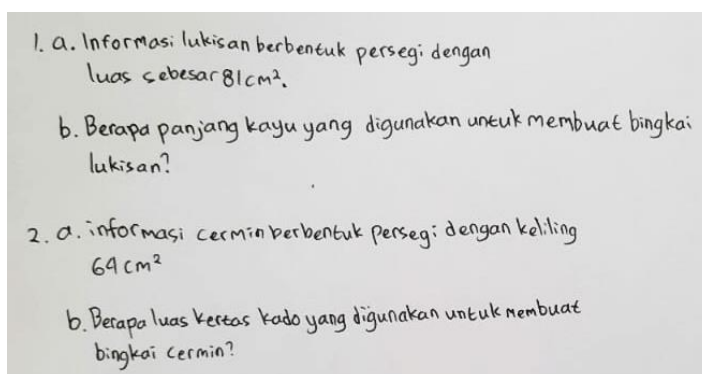 1. a. Informasi lukisan berbentuk persegi dengan
luas sebesar 81 cm².
b. Berapa panjang kayu yang digunakan untuk membuat bingkai
lukisan?
2. a. informasi cermin berbentuk persegi dengan keliling
64 cm²
b. Berapa luas kertas kado yang digunakan untuk membuat
bingkai cermin?